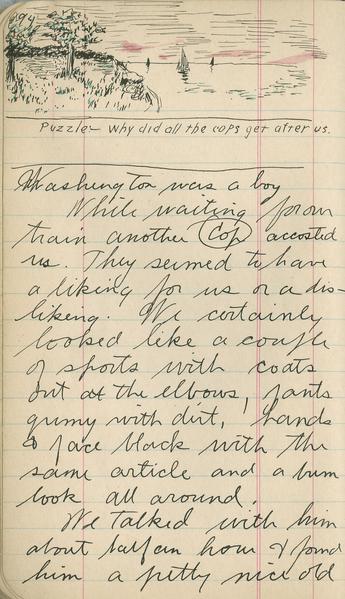 Puzzle - Why did all the cops get after us.
Washington was a boy
While waiting for our
train another Cop accosted
us. They seemed to have
a liking for us or a dis-
likeing. We certainly
looked like a couple
of sports with coats
out at the elbows, pants
gumy with dirt, hands
& face black with the
same article and a bum
look all around.
We talked with him
about half an hour & found
him a pretty nice old